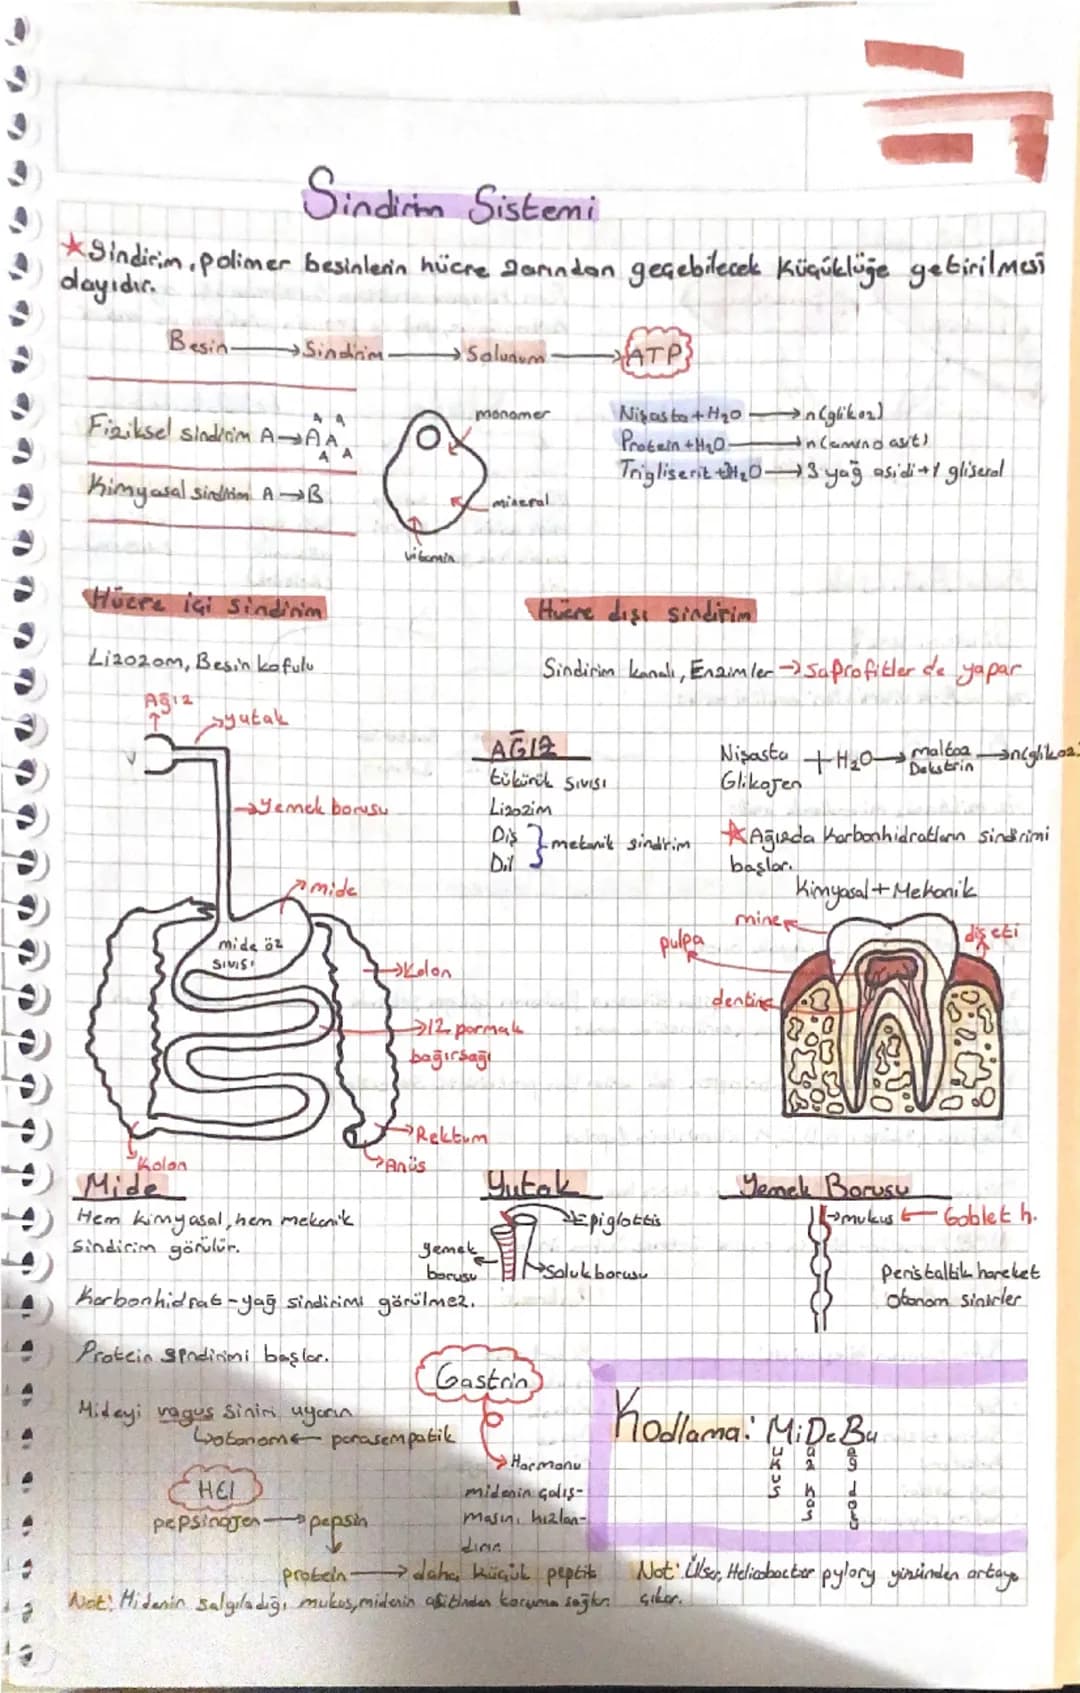 Sindirim Sistemi
★Sindirim, polimer besinlerin hücre zarından geçebilecek küçüklüğe getirilmesi
olayıdır.
Besin → Sindirim → Solunum → ATP
Fiziksel sindirim A→A A A A A
Kimyasal sindirim A→B
monomer
mineral
vitamin
Nişasta + H₂O → n(glikoz)
Protein + H₂O → n(amino asit)
Trigliserit + 3H₂O → 3 yağ asidi + 1 gliserol
Hücre içi sindirim
Lizozom, Besin kofulu
Hücre dışı sindirim
Sindirim kanalı, Enzimler → Saprofitler de yapar
Ağız
yutak
Yemek borusu
mide
mide öz
sıvısı
Kolon
12 parmak
bağırsağı
Rektum
Anüs
Kolon
AĞIZ
tükürük sıvısı
Lizozim
Diş
Dil
mekanik sindirim
Nişasta
Glikojen
+ H₂O → maltoz
Dekstrin
→ n(glikoz)
★Ağızda karbonhidratların sindirimi
başlar.
Kimyasal + Mekanik
mine
pulpa
diş eti
dentin
Mide
Hem kimyasal, hem mekanik
sindirim görülür.
Karbonhidrat-yağ sindirimi görülmez.
Protein sindirimi başlar.
Mideyi vagus siniri uyarır
otonom ← parasempatik
HCl
pepsinojen → pepsin
protein → daha küçük peptit
Not: Midenin salgıladığı mukus, midenin asitinden koruma sağlar.
Yutak
Epiglottis
yemek
borusu
Soluk borusu
Yemek Borusu
mukus ← Goblet h.
Peristaltik hareket
otonom sinirler
Gastrin
Hormonu
midenin çalış-
masını hızlan-
dırır.
Kodlama: MiDeBu
ukus
üz kas
ağ doku
Not: Ülser, Helicobacter pylory yüzünden ortaya
çıkar.